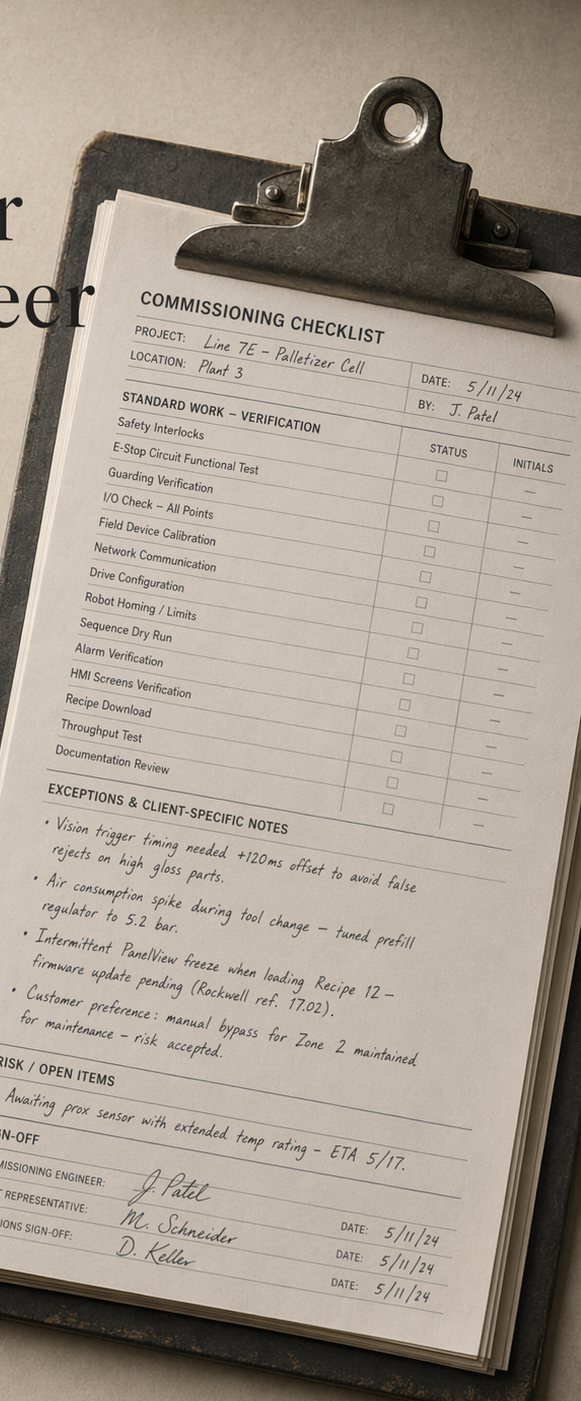 r
eer
COMMISSIONING CHECKLIST
PROJECT: Line 7E – Palletizer Cell
LOCATION: Plant 3
DATE: 5/11/24
BY: J. Patel
STANDARD WORK – VERIFICATION
STATUS
INITIALS
Safety Interlocks
—
E-Stop Circuit Functional Test
—
Guarding Verification
—
I/O Check – All Points
—
Field Device Calibration
—
Network Communication
—
Drive Configuration
—
Robot Homing / Limits
—
Sequence Dry Run
—
Alarm Verification
—
HMI Screens Verification
—
Recipe Download
—
Throughput Test
—
Documentation Review
—
EXCEPTIONS & CLIENT-SPECIFIC NOTES
• Vision trigger timing needed +120ms offset to avoid false
rejects on high gloss parts.
• Air consumption spike during tool change – tuned prefill
regulator to 5.2 bar.
• Intermittent PanelView freeze when loading Recipe 12 –
firmware update pending (Rockwell ref. 17.02).
• Customer preference: manual bypass for Zone 2 maintained
for maintenance – risk accepted.
RISK / OPEN ITEMS
Awaiting prox sensor with extended temp rating – ETA 5/17.
GN-OFF
MISSIONING ENGINEER: J. Patel DATE: 5/11/24
T REPRESENTATIVE: M. Schneider DATE: 5/11/24
IONS SIGN-OFF: D. Keller DATE: 5/11/24